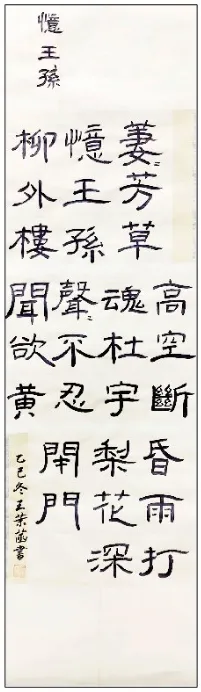 憶王孫
萋〻芳草
憶王孫
柳外樓
高空斷
魂杜宇
聲〻不忍
聞欲黃
昏雨打
梨花深
閉門
乙巳冬王書